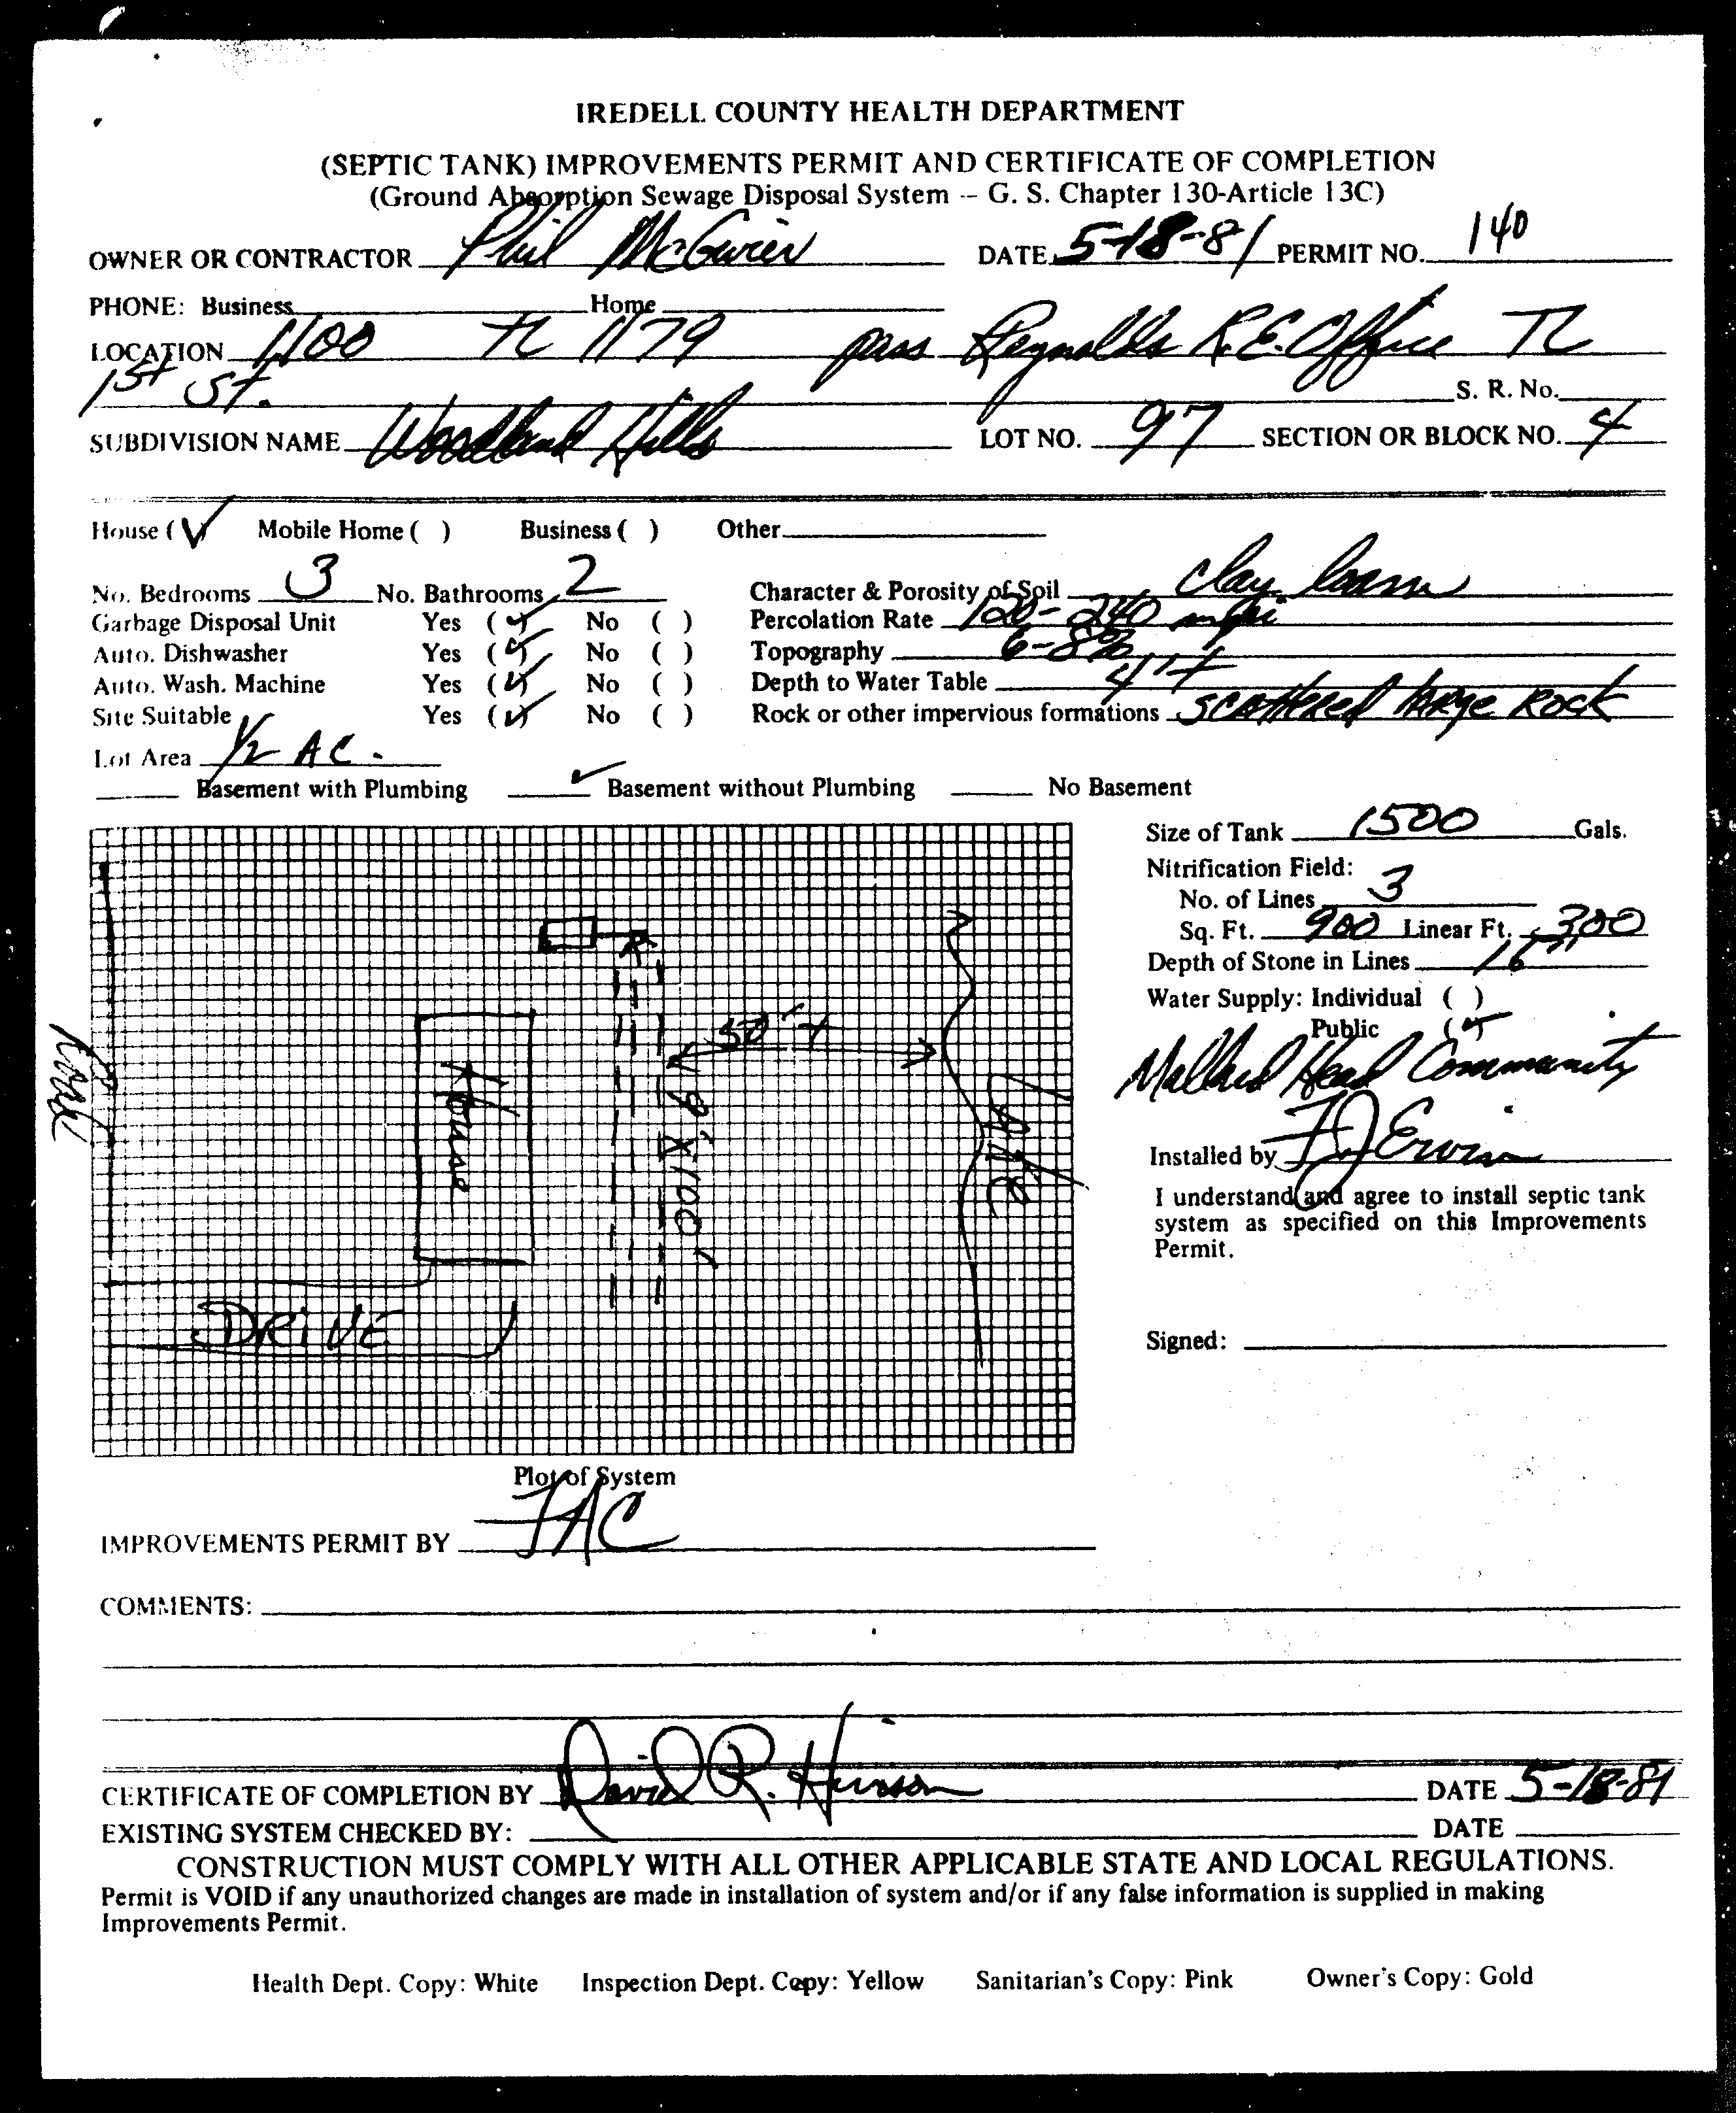 IREDELL COUNTY HEALTH DEPARTMENT
(SEPTIC TANK) IMPROVEMENTS PERMIT AND CERTIFICATE OF COMPLETION
(Ground Absorption Sewage Disposal System -- G. S. Chapter 130-Article 13C)
OWNER OR CONTRACTOR Phil McGuier DATE 5-18-81 PERMIT NO. 140
PHONE: Business Home
LOCATION 1100 TL 1179 pass Reynolds R.E. Office TL
1st St. S. R. No.
SUBDIVISION NAME Woodland Hills LOT NO. 97 SECTION OR BLOCK NO. 4
House (✓) Mobile Home ( ) Business ( ) Other
No. Bedrooms 3 No. Bathrooms 2 Character & Porosity of Soil clay loam
Garbage Disposal Unit Yes (✓) No ( ) Percolation Rate 120-240
Auto. Dishwasher Yes (✓) No ( ) Topography 6-8%
Auto. Wash. Machine Yes (✓) No ( ) Depth to Water Table 4'+
Site Suitable Yes (✓) No ( ) Rock or other impervious formations Scattered large Rock
Lot Area 1/2 AC.
Basement with Plumbing ✓ Basement without Plumbing No Basement
Size of Tank 1500 Gals.
Nitrification Field:
No. of Lines 3
Sq. Ft. 900 Linear Ft. 300
Depth of Stone in Lines 16"
Water Supply: Individual ( )
Public (✓)
Mallard Head Community
Installed by FJ Erwin
I understand and agree to install septic tank
system as specified on this Improvements
Permit.
Signed:
Road
House
50'+
9' X 100'
LAKE
DRIVE
Plot of System
IMPROVEMENTS PERMIT BY JAC
COMMENTS:
CERTIFICATE OF COMPLETION BY David R. Hinson DATE 5-18-81
EXISTING SYSTEM CHECKED BY: DATE
CONSTRUCTION MUST COMPLY WITH ALL OTHER APPLICABLE STATE AND LOCAL REGULATIONS.
Permit is VOID if any unauthorized changes are made in installation of system and/or if any false information is supplied in making
Improvements Permit.
Health Dept. Copy: White Inspection Dept. Copy: Yellow Sanitarian's Copy: Pink Owner's Copy: Gold